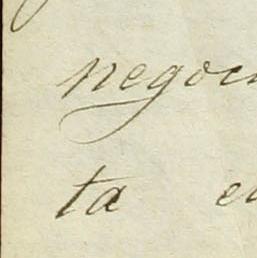 negoci
ta e